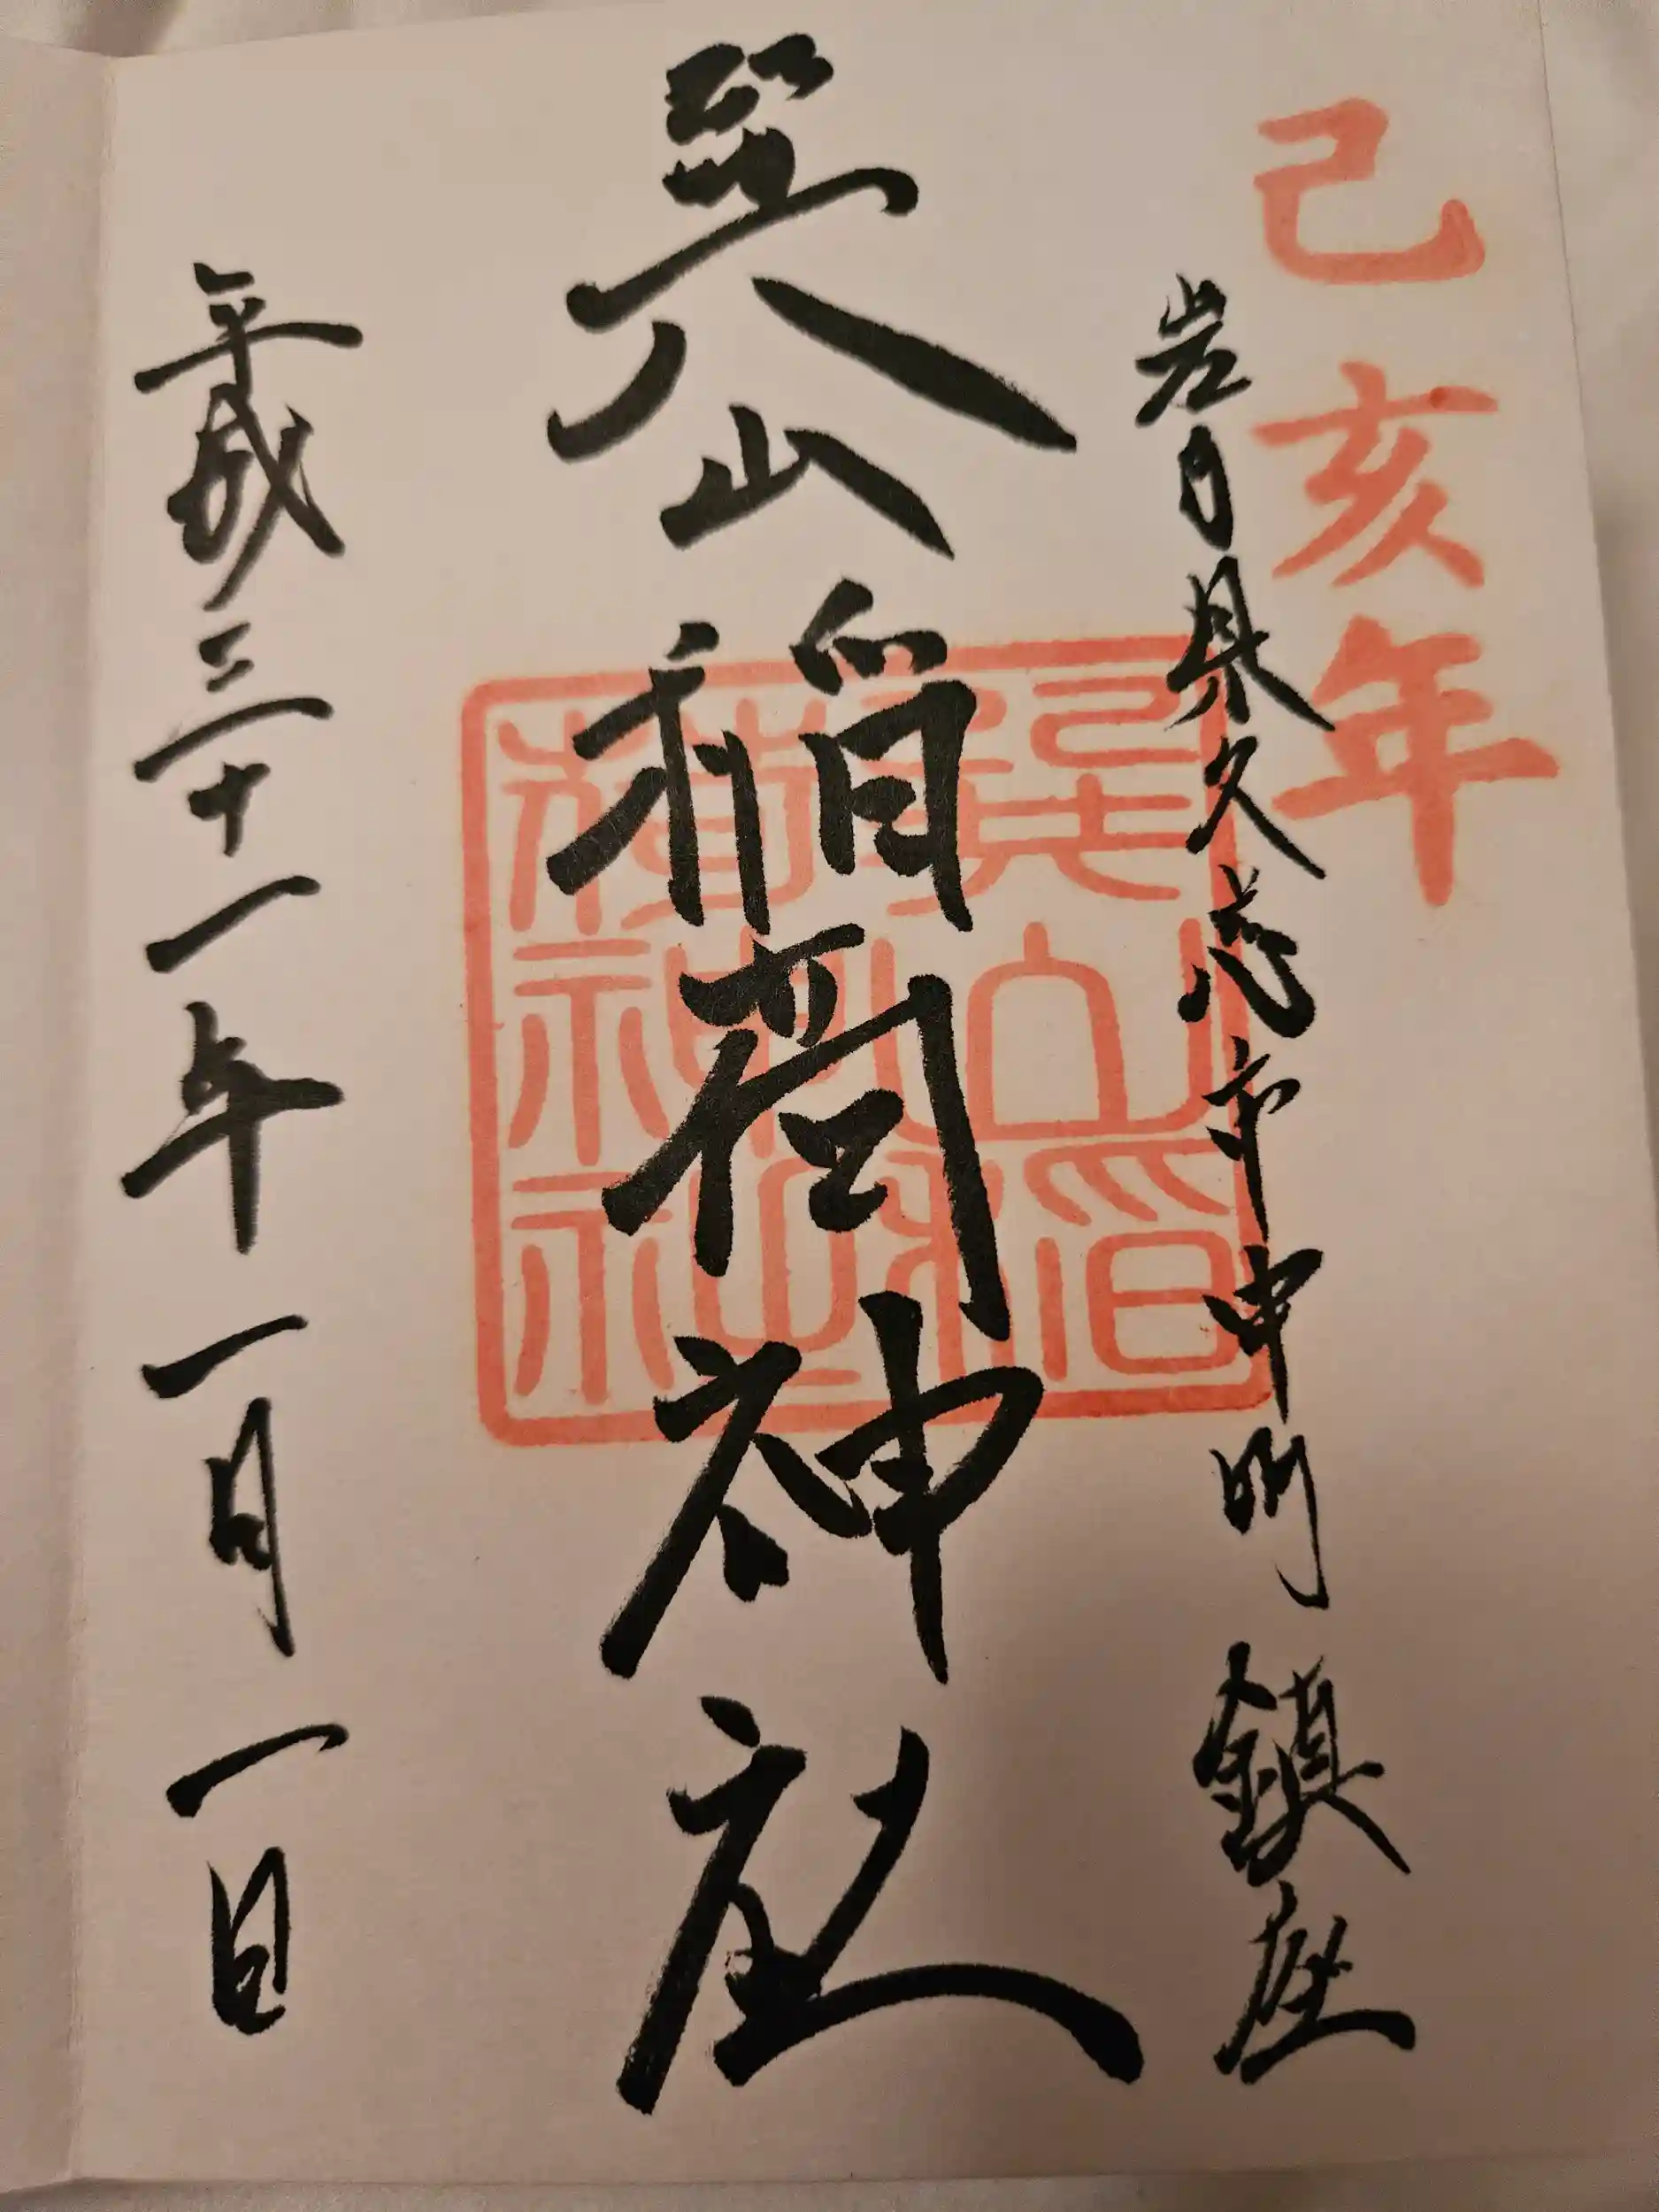 己亥年
岩手県久慈市中町鎮座
巽山稲荷神社
巽山稲荷神社
平成三十一年一月一日